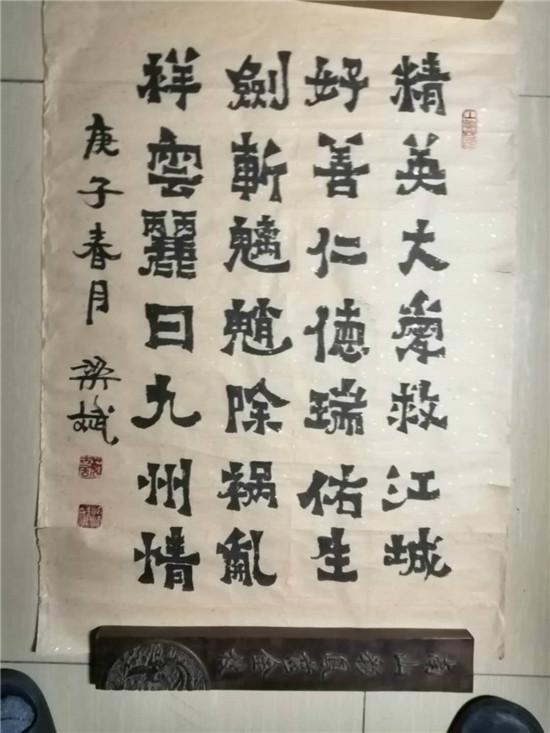 精英大愛救江城
好善仁德瑞佑生
劍斬魑魈除禍亂
祥雲麗日九州情
庚子春月 梁斌